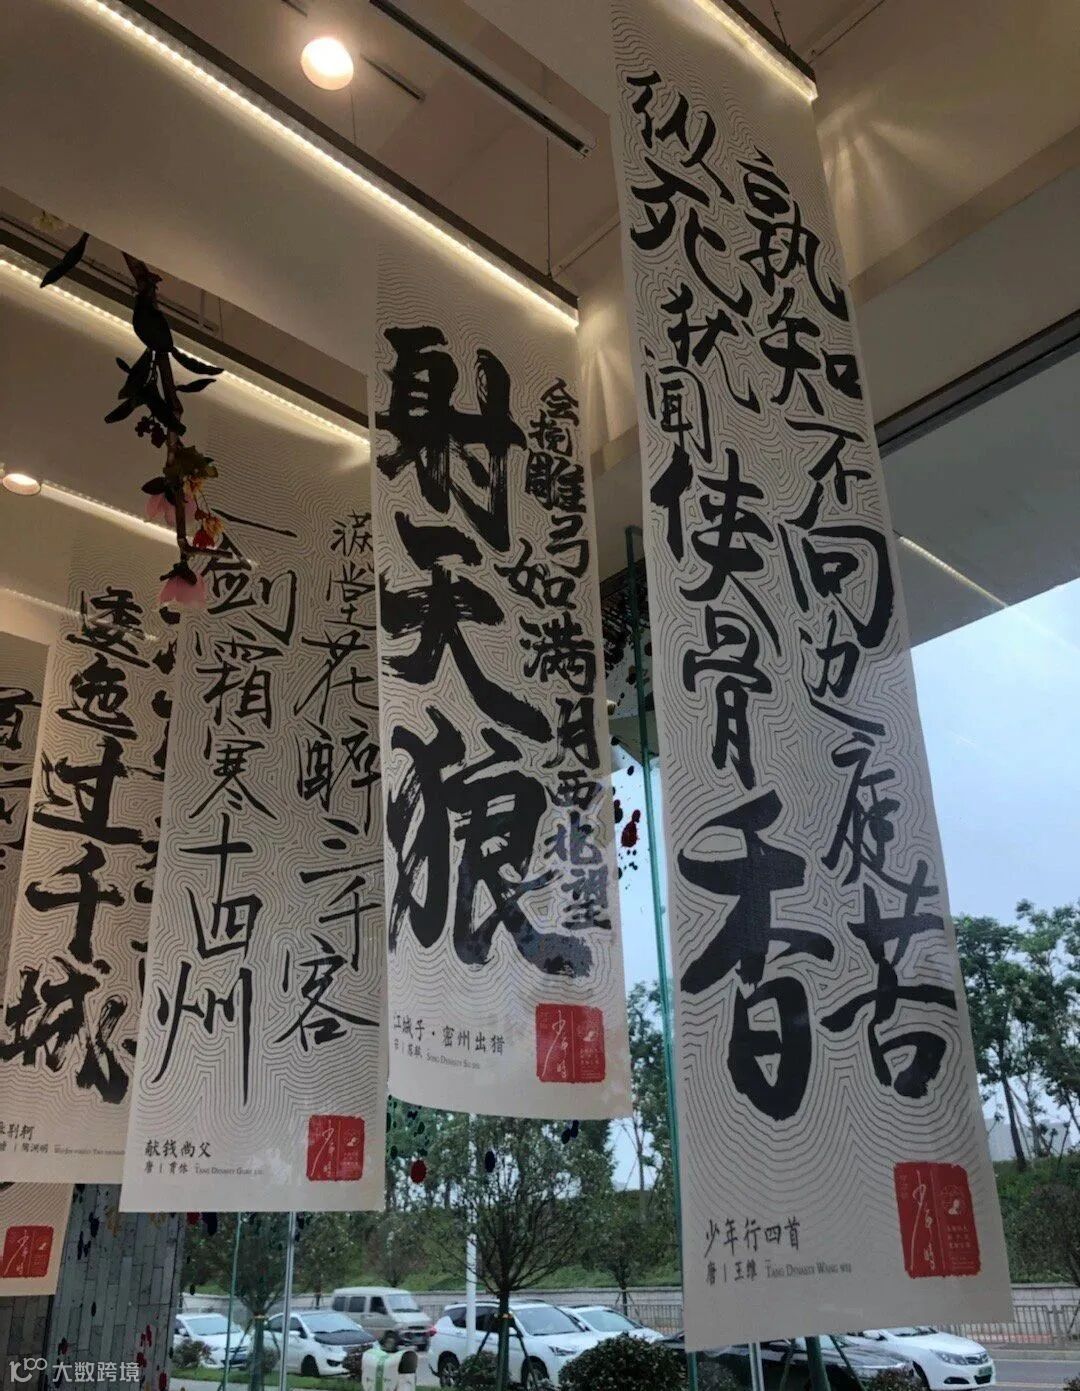 孰知不向边庭苦
纵死犹闻侠骨香
少年行四首
唐 | 王维 TANG DYNASTY WANG WEI
少年時
会挽雕弓如满月西北望
射天狼
江城子·密州出猎
宋 | 苏轼 SONG DYNASTY SU SHI
少年時
满堂花醉三千客
一剑霜寒十四州
献钱尚父
唐 | 贯休 TANG DYNASTY GUAN XIU
少年時
逶迤过千城
咏荆轲
陶渊明
大数跨境